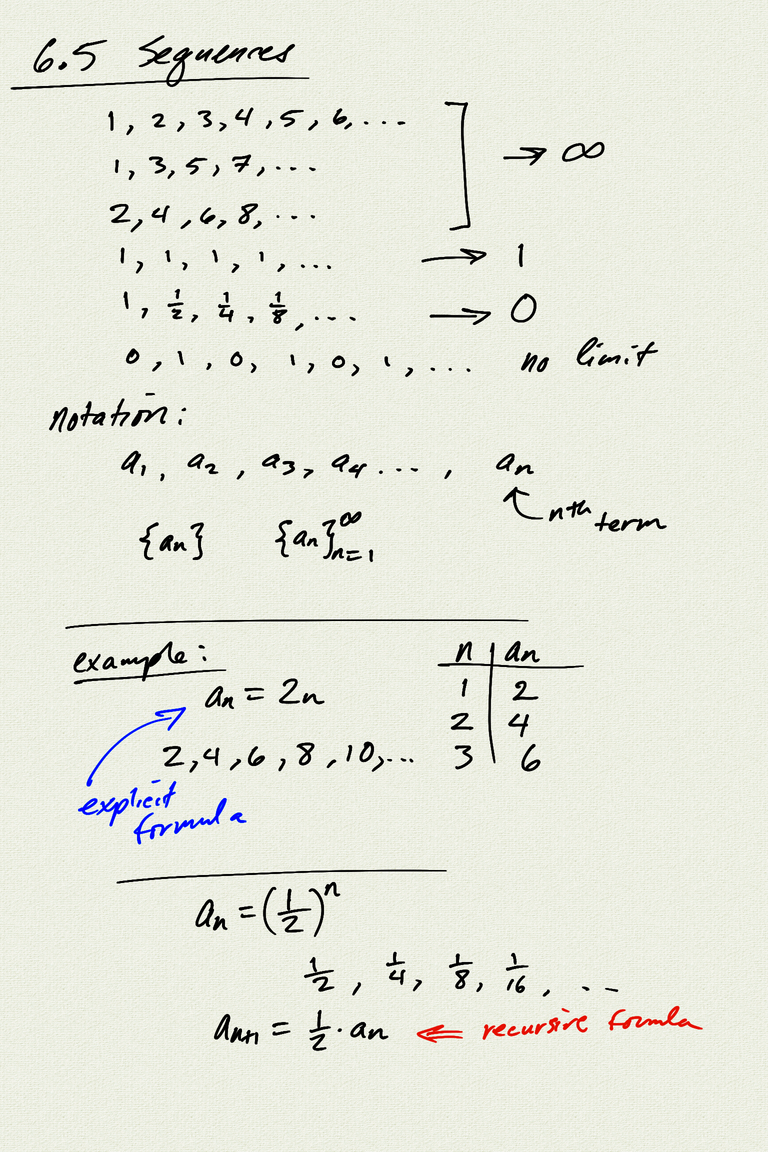 6.5 Sequences
1, 2, 3, 4, 5, 6, ...
1, 3, 5, 7, ... → ∞
2, 4, 6, 8, ...
1, 1, 1, 1, ... → 1
1, 1/2, 1/4, 1/8, ... → 0
0, 1, 0, 1, 0, 1, ... no limit
notation:
a₁, a₂, a₃, a₄ ..., aₙ
nth term
{aₙ} {aₙ}ₙ₌₁^∞
example:
n | aₙ
aₙ = 2n
1 | 2
2 | 4
2, 4, 6, 8, 10, ...
3 | 6
explicit
formula
aₙ = (1/2)ⁿ
1/2, 1/4, 1/8, 1/16, ...
aₙ₊₁ = 1/2 · aₙ ⇐ recursive formula